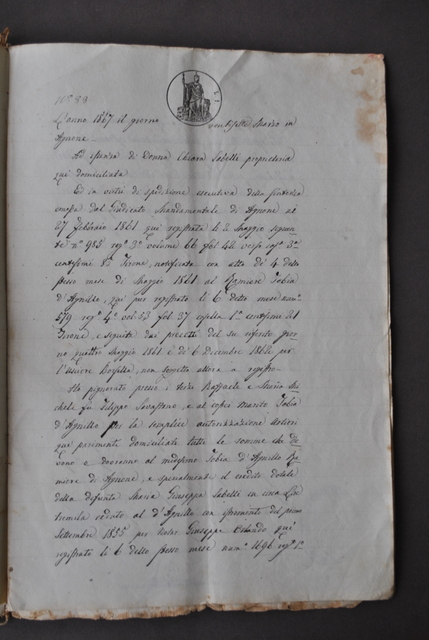 N.° 33
L'anno 1867 il giorno ventisette Marzo in
Agnone
Ad istanza di Donna Chiara Sabelli proprietaria
qui domiciliata
Ed in virtù di spedizione esecutiva della sentenza
emessa dal Giudicato Mandamentale di Agnone ai
27 Febbraio 1861 qui registrata li 2 Maggio seguen
te n° 983 reg° 3° volume 66 fol 42 verso reg° 3°
centesimi 80 Tirone, notificata con atto de' 4 dello
stesso mese di Maggio 1861 al Ramiere Tobia
d'Agnillo, qui pur registrato li 6 detto mese num°
579 reg° 4° vol 53 fol 37 casella 1° centesimi
Tirone, e seguita dai precetti del su riferito gior
no quattro Maggio 1861 e di 6 dicembre 1862 per
l'usciere
Ho pignorato presso i terzi Raffaele e Maria Mi
chela fu Filippo Savastano, e al costei marito Tobia
d'Agnillo per la semplice autorizzazione
qui parimenti domiciliati tutte le somme che de
vono e dovranno al medesimo Tobia d'Agnillo Ra
miere di Agnone, e specialmente il credito dotale
della defunta Maria Giuseppa Sabelli in circa Lire
tremila ceduto al d'Agnillo con istromento del primo
Settembre 1855 per Notar Giuseppe Orlando qui
registrato li 6 dello stesso mese num° 1696 reg° 1°